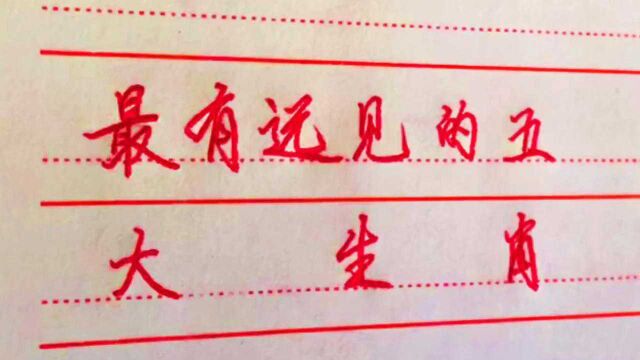 最有远见的五
大 生 肖